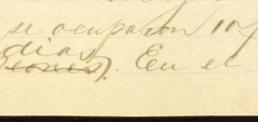 se ocuparon 107
dias
. En el